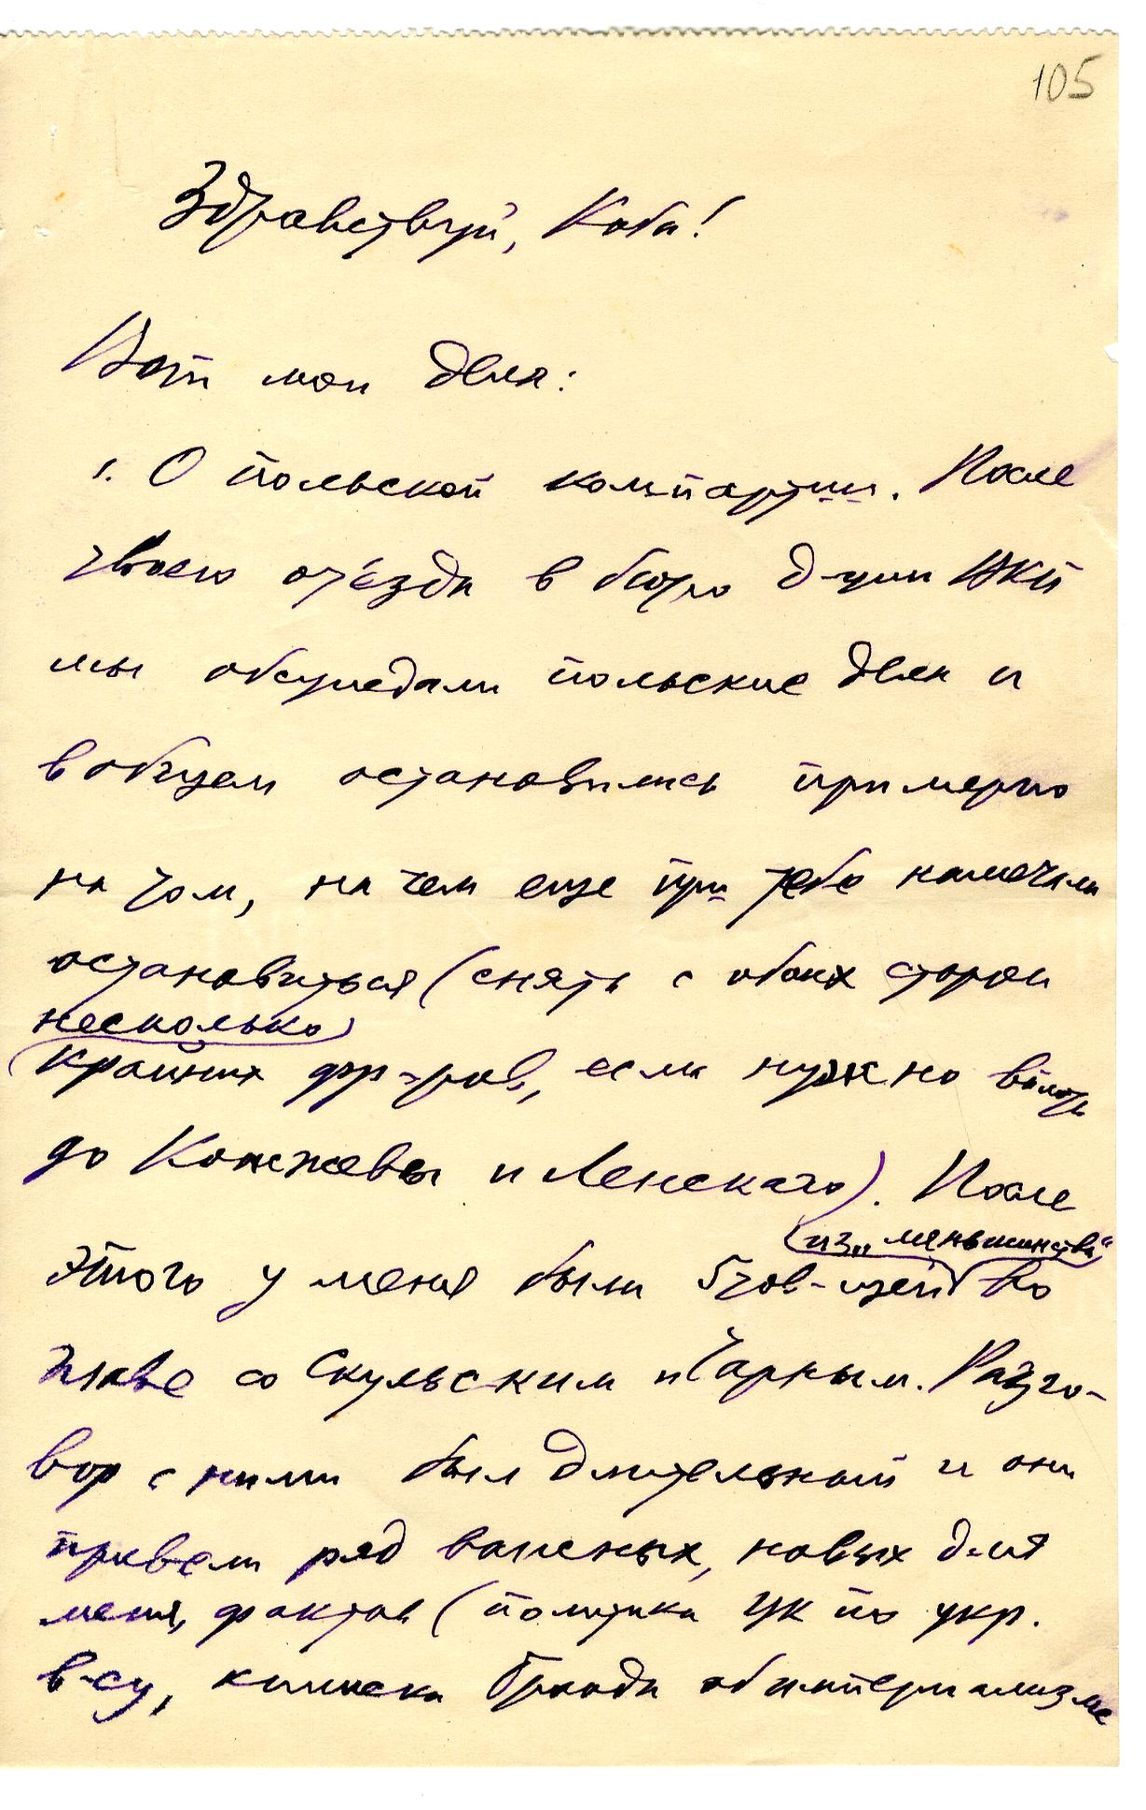 105
Здравствуй, Коба!
Вот мои дела:
1. О польской компартии. После
твоего от'езда в бюро д-ции ВКП
мы обсуждали польские дела и
в общем остановились примерно
на том, на чем еще при тебе намечали
остановиться (снять с обоих сторон
несколько
крайних фр-ров, если нужно вплоть
до Костжевы и Ленского). После
из „меньшинства"
этого у меня были 5 тов-щей во
главе со Скульским и Чарным. Разго-
вор с ними был длительный и они
привели ряд важных, новых для
меня, фактов (политика ЦК по укр.
в-су, книжка Бранда об империализме